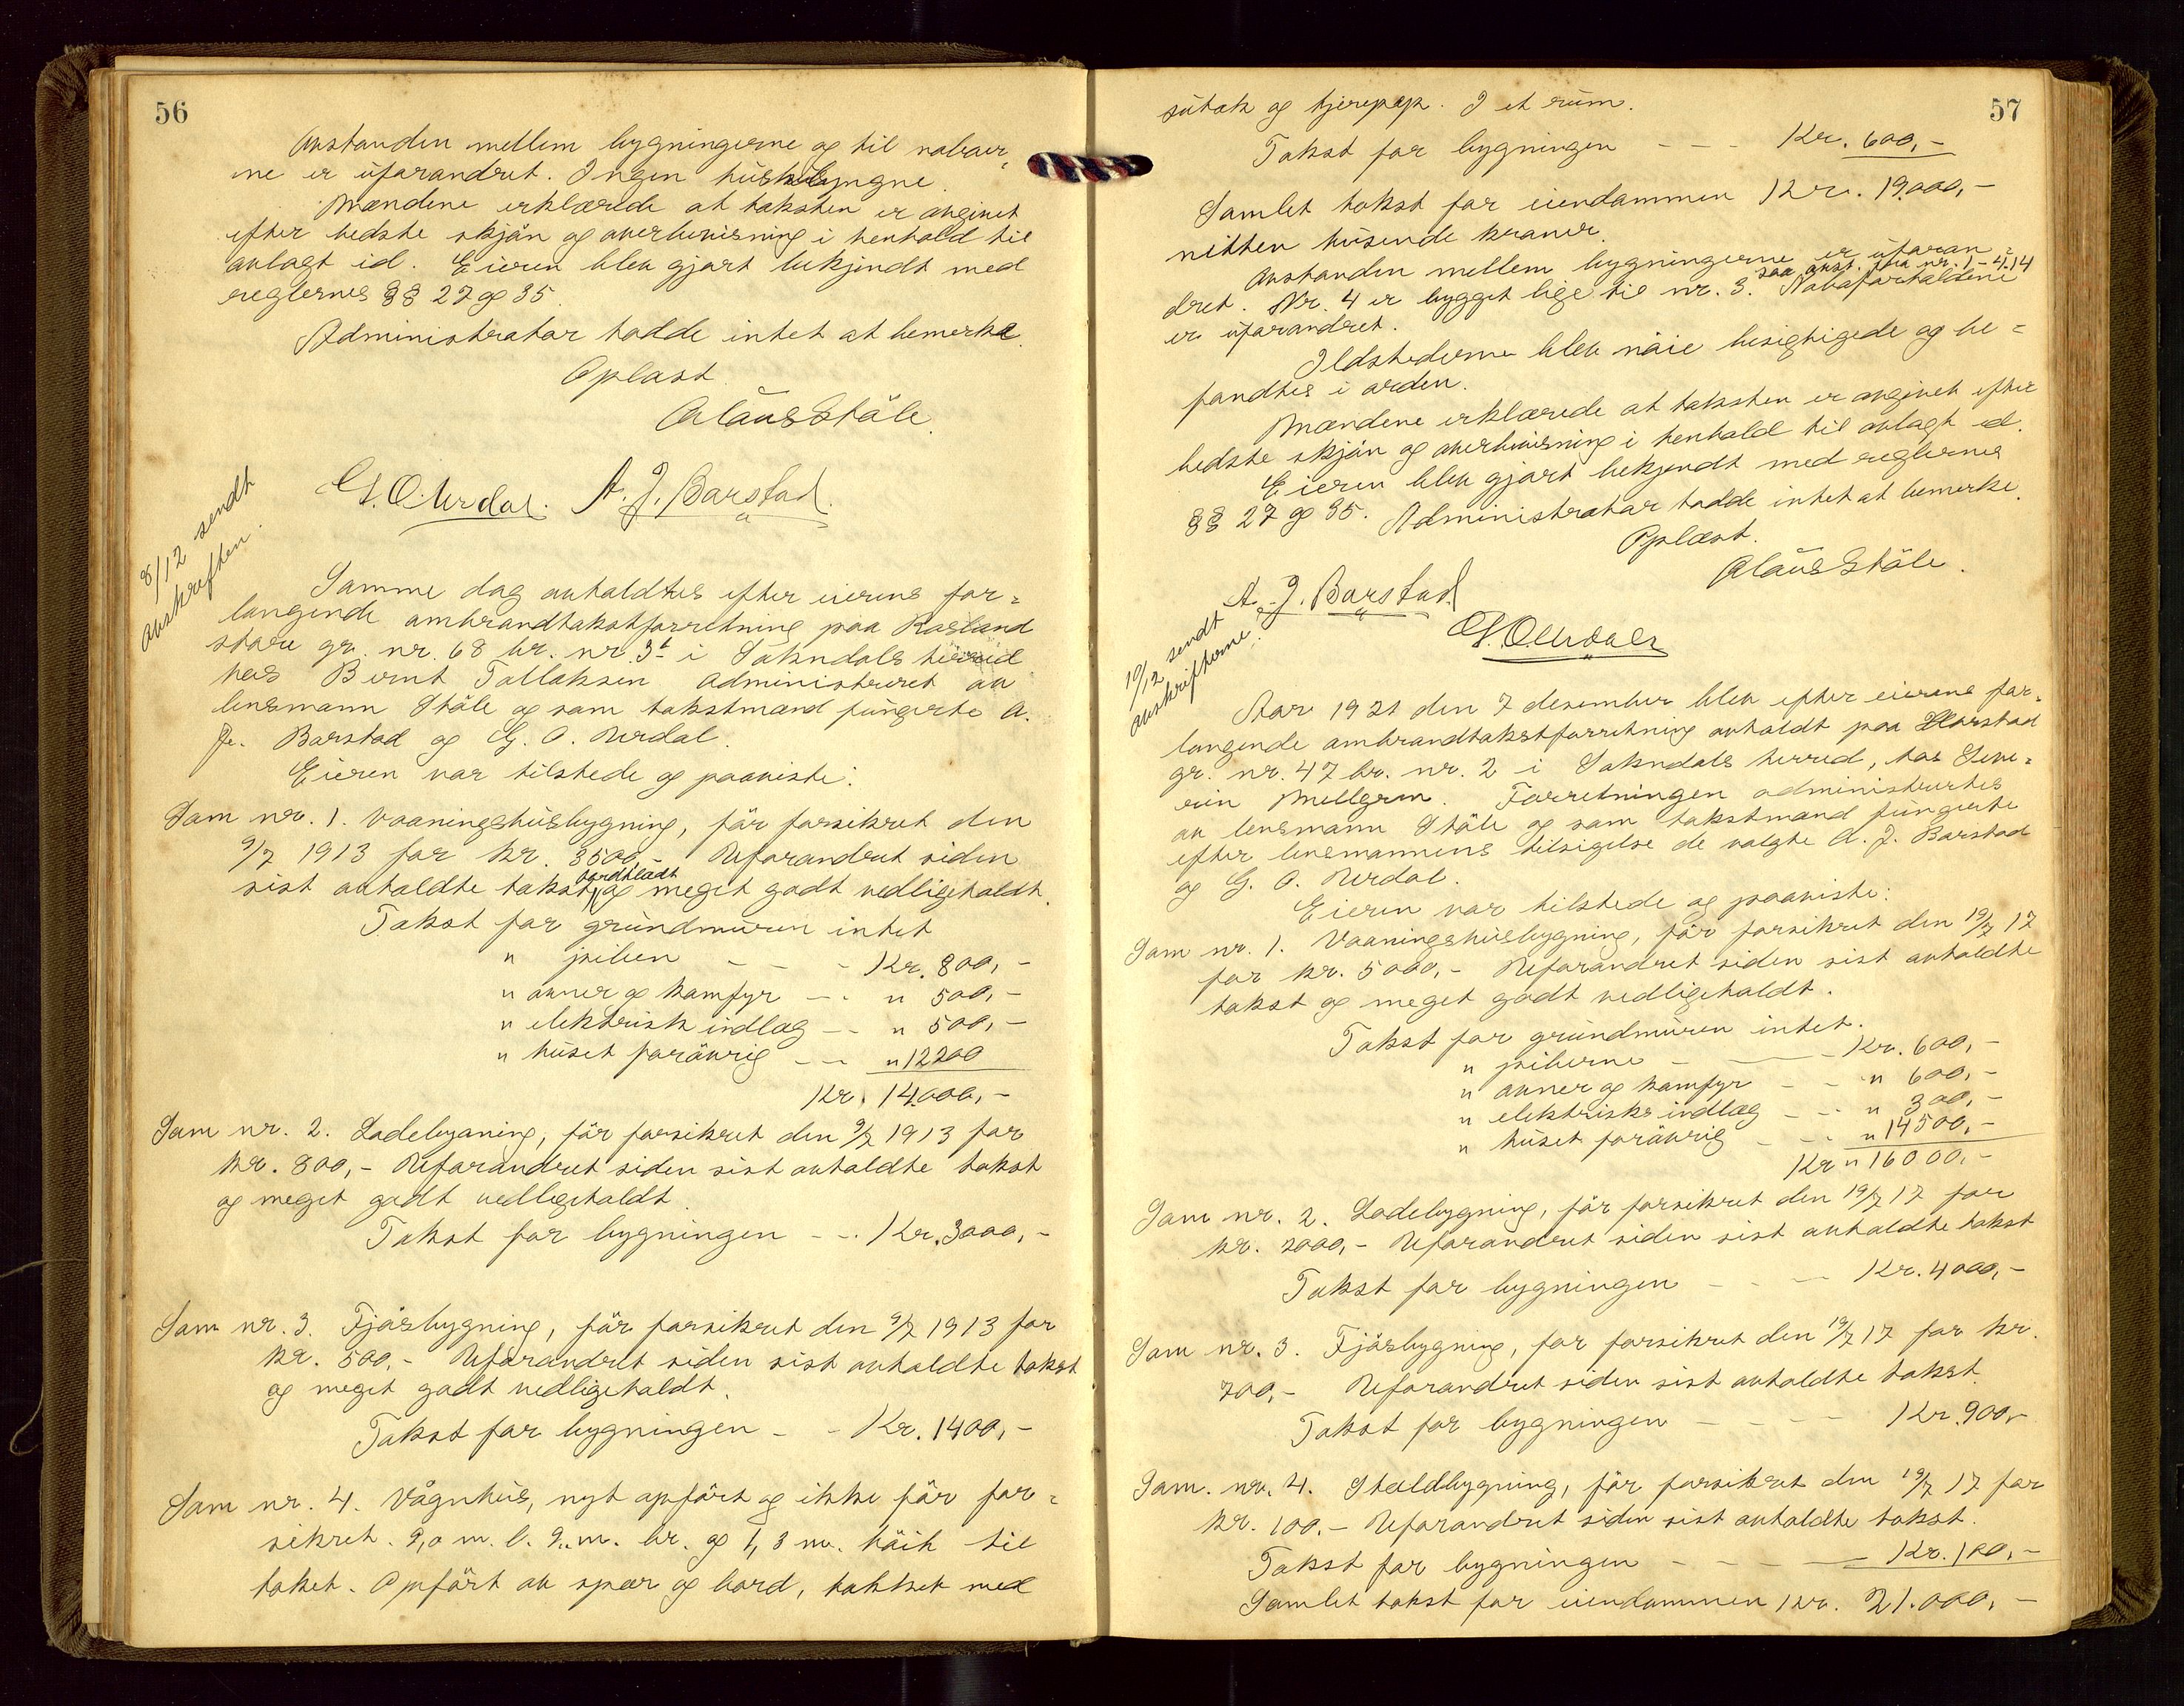 56
Avstanden mellem bygningerne og til naboer-
ne er uforandret. Ingen husklyngne.
Mændene erklærede at taksten er avgivet
efter bedste skjøn og overbevisning i henhold til
avlagt ed. Eieren blev gjort bekjendt med
reglernes §§ 27 og 35.
Administrator hadde intet at bemerke.
Oplæst
Claus Ståle.
G. O. Urdal. A. J. Barstad.
8/12 sendt
avskriften.
Samme dag avholdtes efter eierens for=
langende ombrandtakstforretning paa Rosland
store gr. nr. 68 br. nr. 3 i Sokndals herred
hos Bernt Tollaksen administreret av
lensmann Ståle og som takstmænd fungerte A.
J. Barstad og G. O. Urdal.
Eieren var tilstede og paaviste:
Som nr. 1. Vaaningshusbygning, før forsikret den
9/7 1913 for kr. 3500,- Uforandret siden
sist avholdte takst, bordklædt og meget godt vedligeholdt.
Takst for grundmuren intet
" piben - - - Kr. 800,-
" ovner og komfyr - - " 500,-
" elektrisk indlæg - - " 500,-
" huset forøvrig - - " 12200
Kr. 14.000,-
Som nr. 2. Ladebygning, før forsikret den 9/7 1913 for
kr. 800,- Uforandret siden sist avholdte takst
og meget godt vedligeholdt.
Takst for bygningen - - Kr. 3000,-
Som nr. 3. Fjøsbygning, før forsikret den 9/7 1913 for
kr. 500,- Uforandret siden sist avholdte takst
og meget godt vedligeholdt.
Takst for bygningen - - Kr. 1400,-
Som nr. 4. Vågnhus, nyt opført og ikke før for=
sikret. 9,0 m. l. 9,. m. br. og 1,8 m. høik til
taket. Opført av spær og bord, tækket med
57
sutak og tjerepap. I et rum.
Takst for bygningen - - - Kr. 600,-
Samlet takst for eiendommen Kr. 19.000,-
nitten tusende kroner.
Avstanden mellem bygningerne er uforan=
dret. Nr. 4 er bygget lige til nr. 3. saa avst. fra nr. 1 - 4.14 Naboforholdene
er uforandret.
Ildstederne blev nøie besigtigede og be=
fandtes i orden.
Mændene erklærede at taksten er avgivet efter
bedste skjøn og overbevisning i henhold til avlagt ed.
Eieren blev gjort bekjendt med reglernes
§§ 27 og 35. Administrator hadde intet at bemerke.
Oplæst.
Claus Ståle.
A. J. Barstad
G. O. Urdal
10/12 sendt
avskrifterne.
Aar 1921 den 7 desember blev efter eierens for-
langende ombrandtakstforretning avholdt paa Harstad
gr. nr. 47 br. nr. 2 i Sokndals herred, hos Seve=
rin Mellgren. Forretningen administrertes
av lensmann Ståle og som takstmænd fungerte
efter lensmannens tilsigelse de valgte A. J. Barstad
og G. O. Urdal.
Eieren var tilstede og paaviste:
Som nr. 1. Vaaningshusbygning, før forsikret den 19/7 17
for kr. 5000,- Uforandret siden sist avholdte
takst og meget godt vedligeholdt.
Takst for grundmuren intet.
" piberne - - Kr. 600,-
" ovner og komfyr - - " 600,-
" elektriske indlæg - - " 300,-
" huset forøvrig - - " 14500,-
Kr " 16000,-
Som nr. 2. Ladebygning, før forsikret den 19/7 17 for
kr. 2000,- Uforandret siden sist avholdte takst
Takst for bygningen - - - Kr. 4000,-
Som nr. 3. Fjøsbygning, før forsikret den 19/7 17 for kr.
700,- Uforandret siden sist avholdte takst.
Takst for bygningen - - - - Kr. 900,-
Som. nr. 4. Staldbygning, før forsikret den 19/7 17 for
kr. 100.- Uforandret siden sist avholdte takst.
Takst for bygningen - - - - Kr. 100,-
Samlet takst for eiendommen Kr. 21.000,-